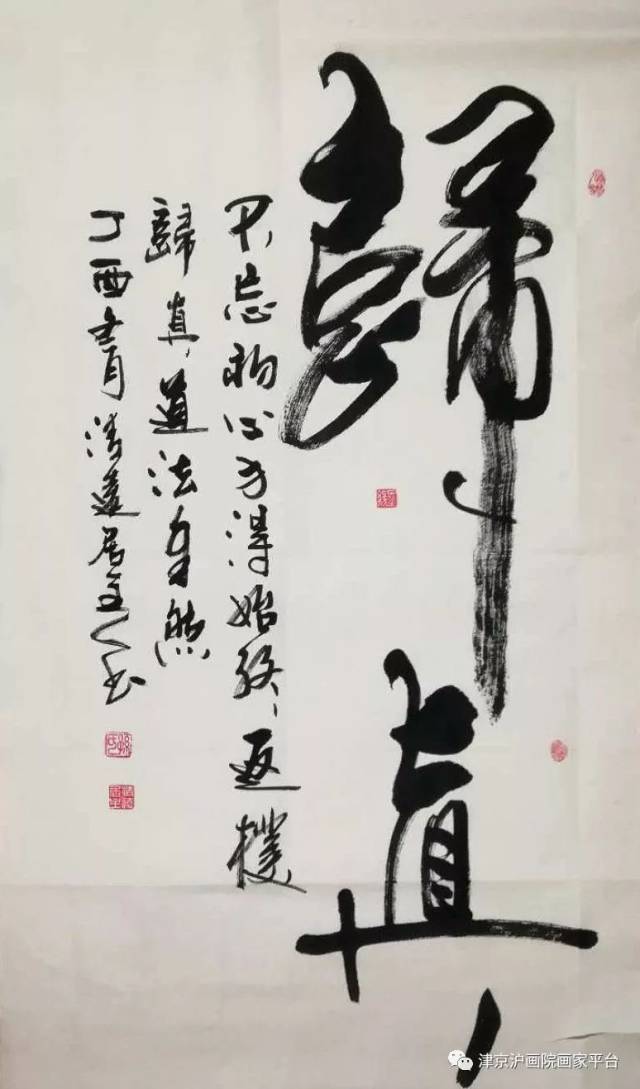 歸真
不忘初心方得始終返樸
歸真道法自然
丁酉青月清遠居主人書
津京沪画院画家平台